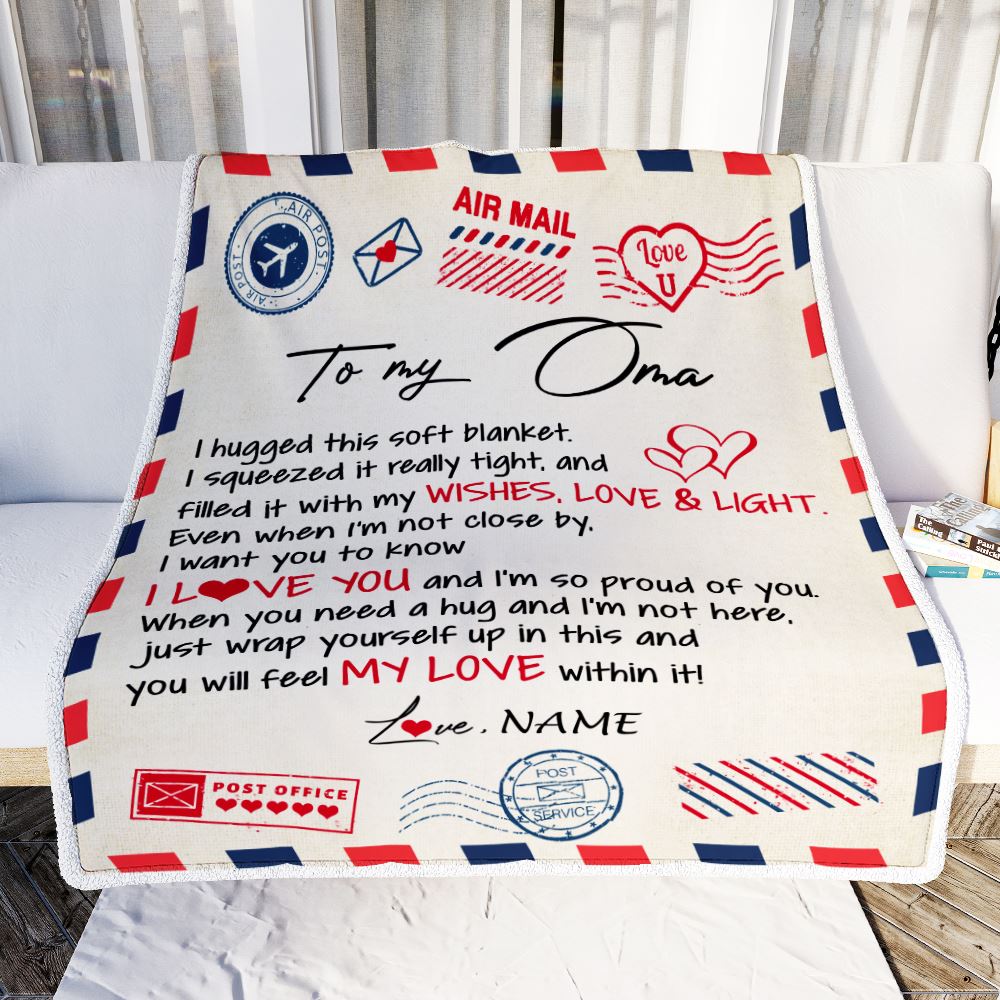 AIR POST
AIR POST
AIR MAIL
Love
U
To my Oma
I hugged this soft blanket.
I squeezed it really tight, and
filled it with my WISHES, LOVE & LIGHT.
Even when I'm not close by,
I want you to know
I L❤VE YOU and I'm so proud of you.
When you need a hug and I'm not here,
just wrap yourself up in this and
you will feel MY LOVE within it!
L❤ve, NAME
POST OFFICE
POST
SERVICE
The
Calling
Paul